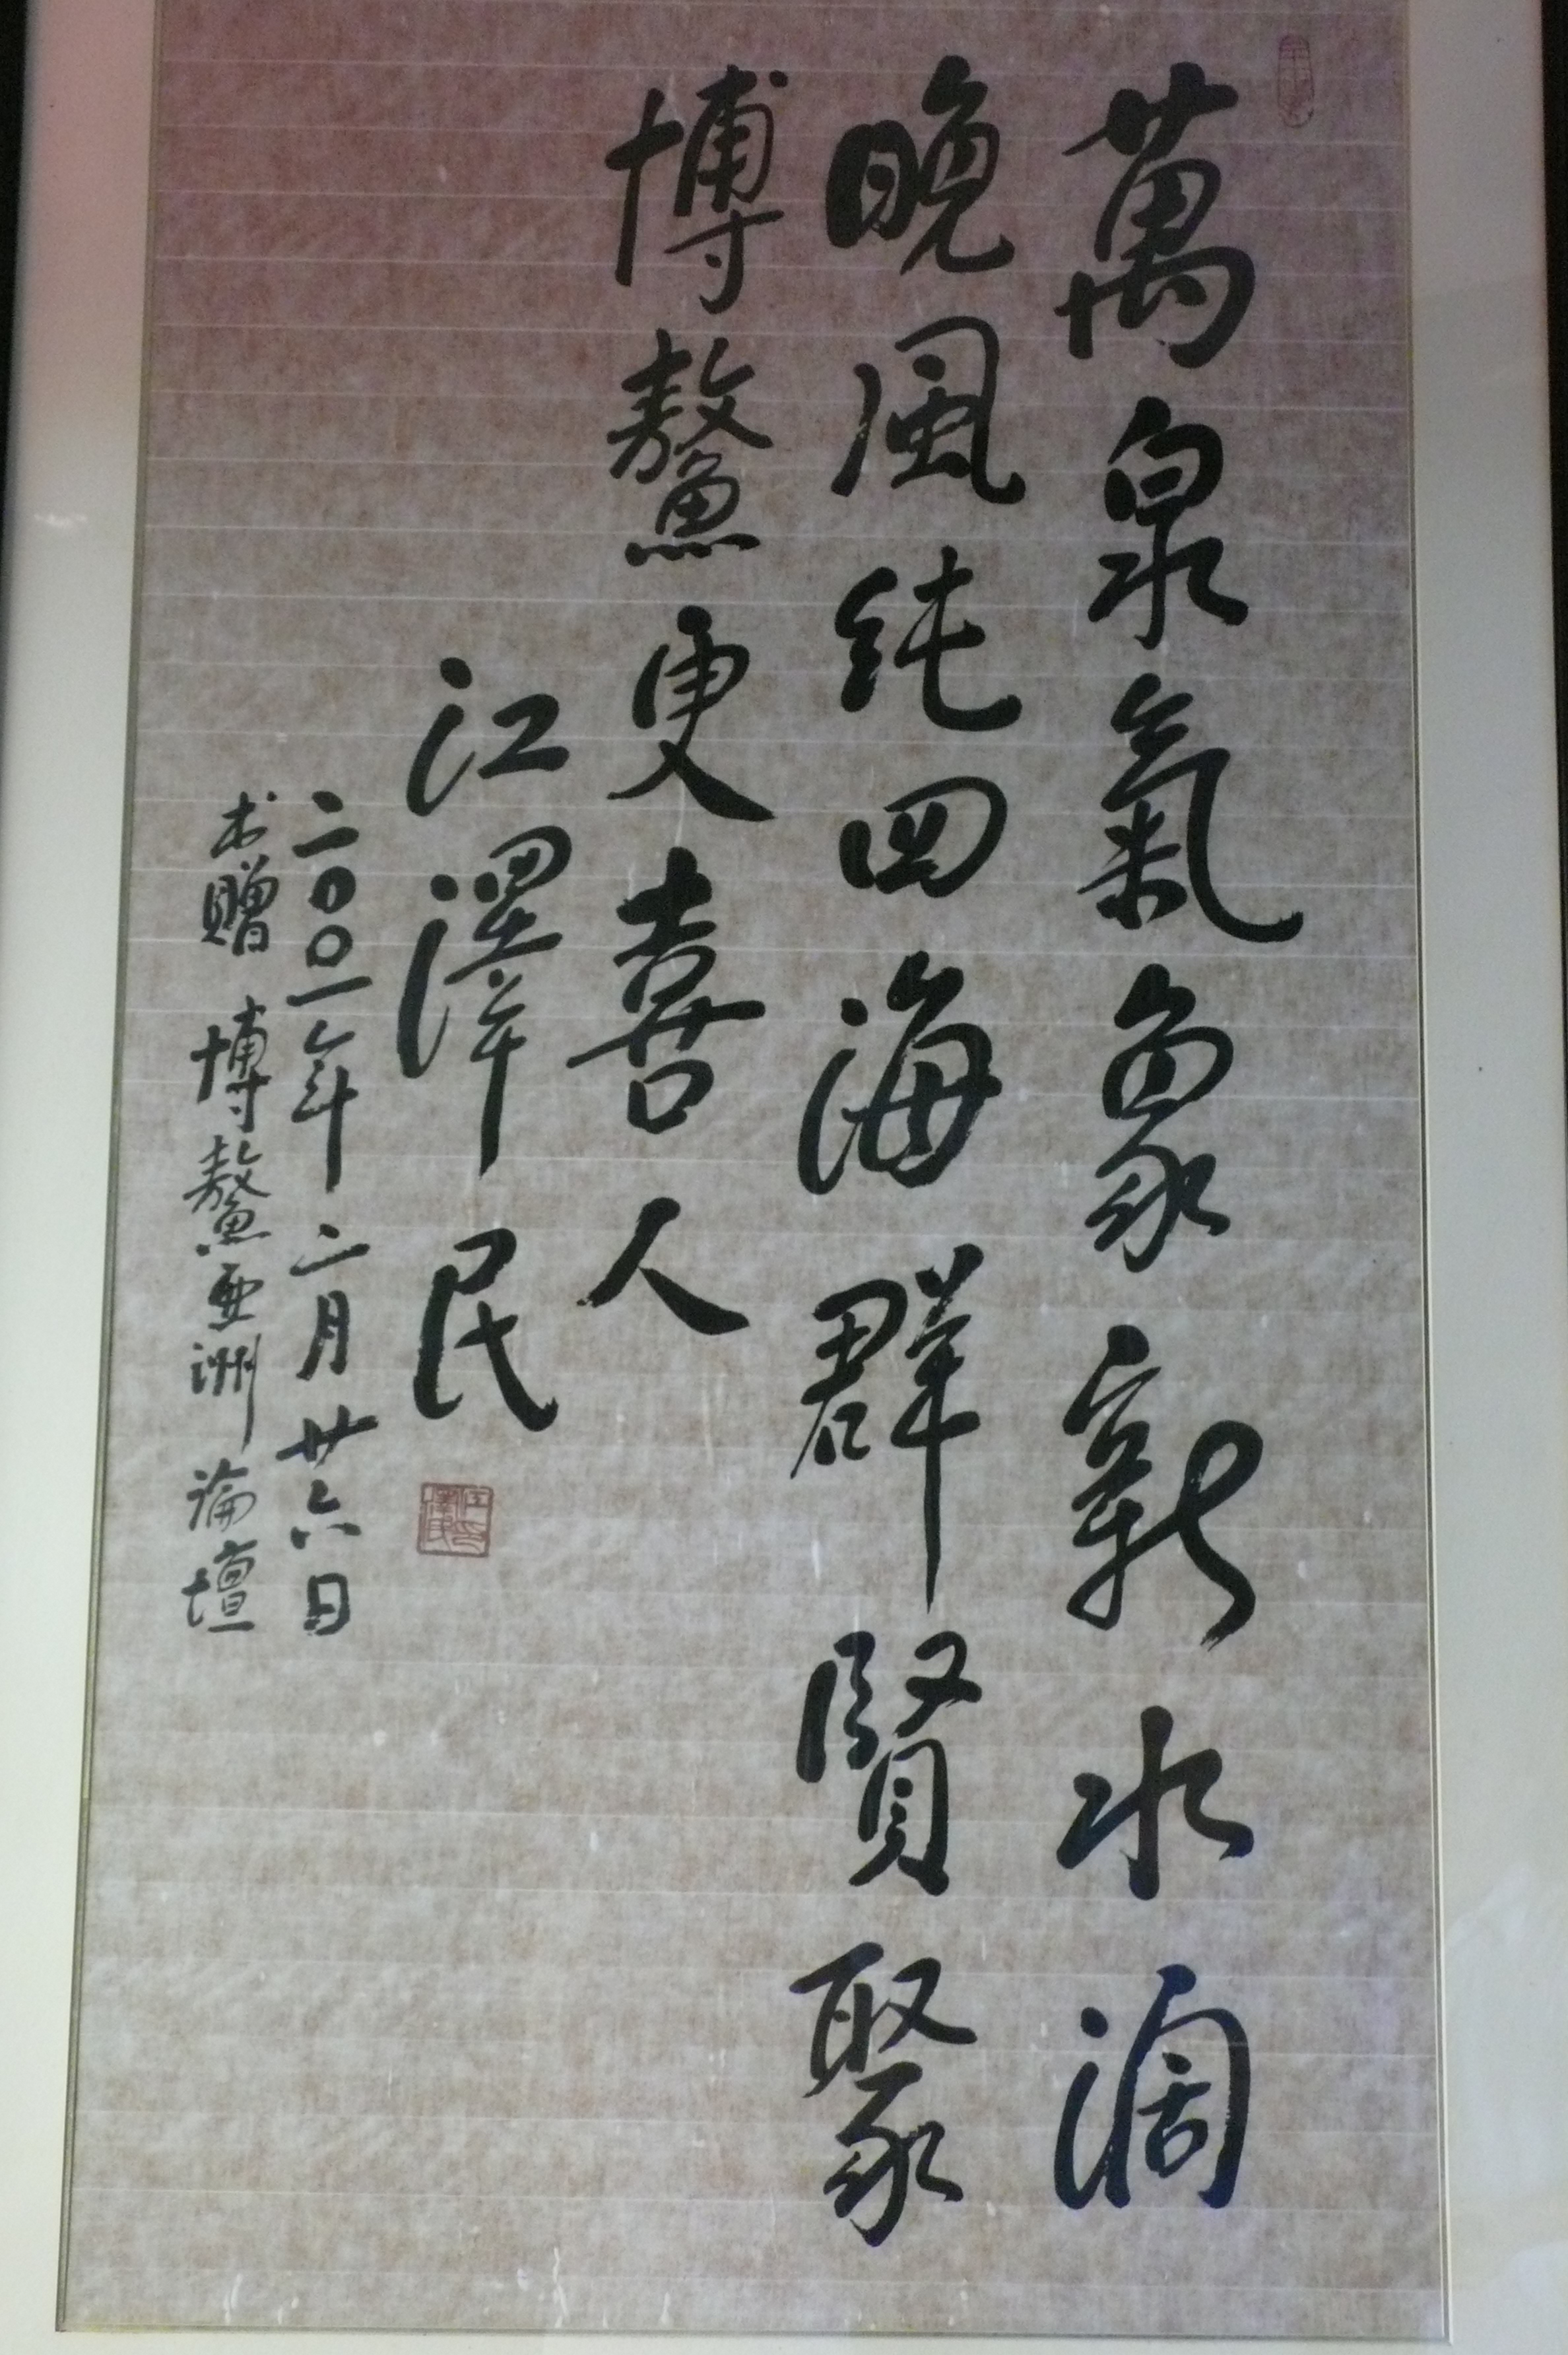 萬泉氣象新水闊
晚風純四海群賢聚
博鰲更喜人
江澤民
二〇〇一年二月廿六日
书贈 博鰲亚洲論壇